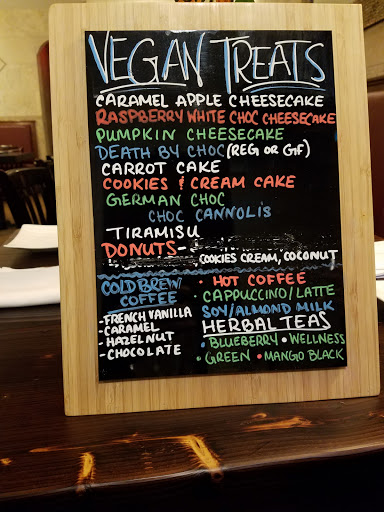 VEGAN TREATS
CARAMEL APPLE CHEESECAKE
RASPBERRY WHITE CHOC CHEESECAKE
PUMPKIN CHEESECAKE
DEATH BY CHOC (REG OR GF)
CARROT CAKE
COOKIES & CREAM CAKE
GERMAN CHOC
CHOC CANNOLIS
TIRAMISU
DONUTS-
COOKIES CREAM, COCONUT
COLD BREW
COFFEE
-FRENCH VANILLA
-CARAMEL
-HAZELNUT
-CHOCOLATE
• HOT COFFEE
• CAPPUCCINO/LATTE
SOY/ALMOND MILK
HERBAL TEAS
• BLUEBERRY • WELLNESS
• GREEN • MANGO BLACK